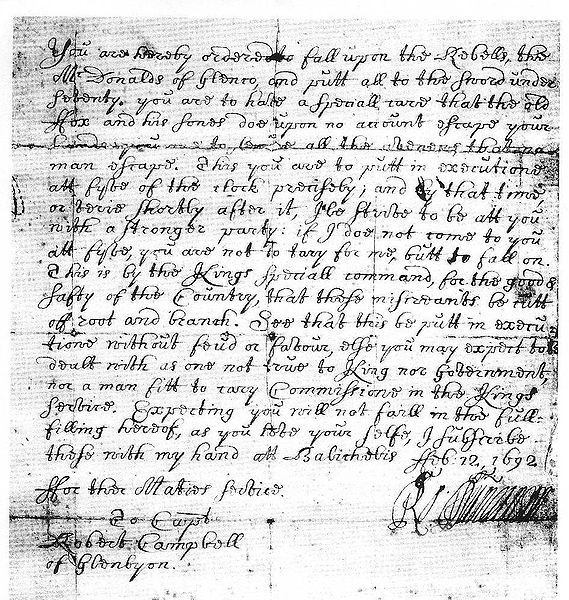 You are hereby ordered to fall upon the Rebells, the
McDonalds of Glenco, and putt all to the sword under
seventy. you are to have a speciall care that the old
ffox and his sones doe upon no account escape your
hands, you are to secure all the avenues that no
man escape. This you are to putt in executione
att fyve of the clock precisely; and by that time
or verie shortly after it, I'le strive to be att you
with a stronger party: if I doe not come to you
att fyve, you are not to tary for me, butt to fall on.
This is by the Kings speciall command, for the good &
safty of the Country, that these miscreants be cutt
off root and branch. See that this be putt in execu
tione without feud or favour, else you may expect to be
dealt with as one not true to King nor Government,
nor a man fitt to cary Commissione in the Kings
service. Expecting you will not faill in the full-
filling hereof, as you love your selfe, I subscribe
these with my hand att Balicholis ffeb: 12, 1692
ffor their Maties service
To Capt
Robert Campbell
of Glenlyon.